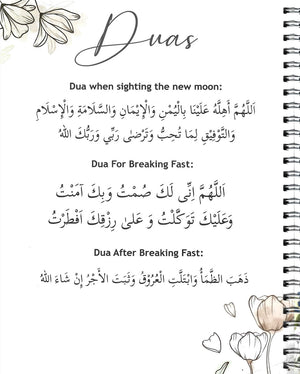 Duas
Dua when sighting the new moon:
اَللَّهُمَّ أَهِلَّهُ عَلَيْنَا بِالْيُمْنِ وَالْإِيْمَانِ وَالسَّلَامَةِ وَالْإِسْلَامِ
وَالتَّوْفِيْقِ لِمَا تُحِبُّ وَتَرْضَى رَبِّي وَرَبُّكَ اللهُ
Dua For Breaking Fast:
اَللَّهُمَّ اِنِّى لَكَ صُمْتُ وَبِكَ آمَنْتُ
وَعَلَيْكَ تَوَكَّلْتُ وَ عَلىٰ رِزْقِكَ اَفْطَرْتُ
Dua After Breaking Fast:
ذَهَبَ الظَّمَأُ وَابْتَلَّتِ الْعُرُوْقُ وَثَبَتَ الْأَجْرُ إِنْ شَاءَ اللهُ